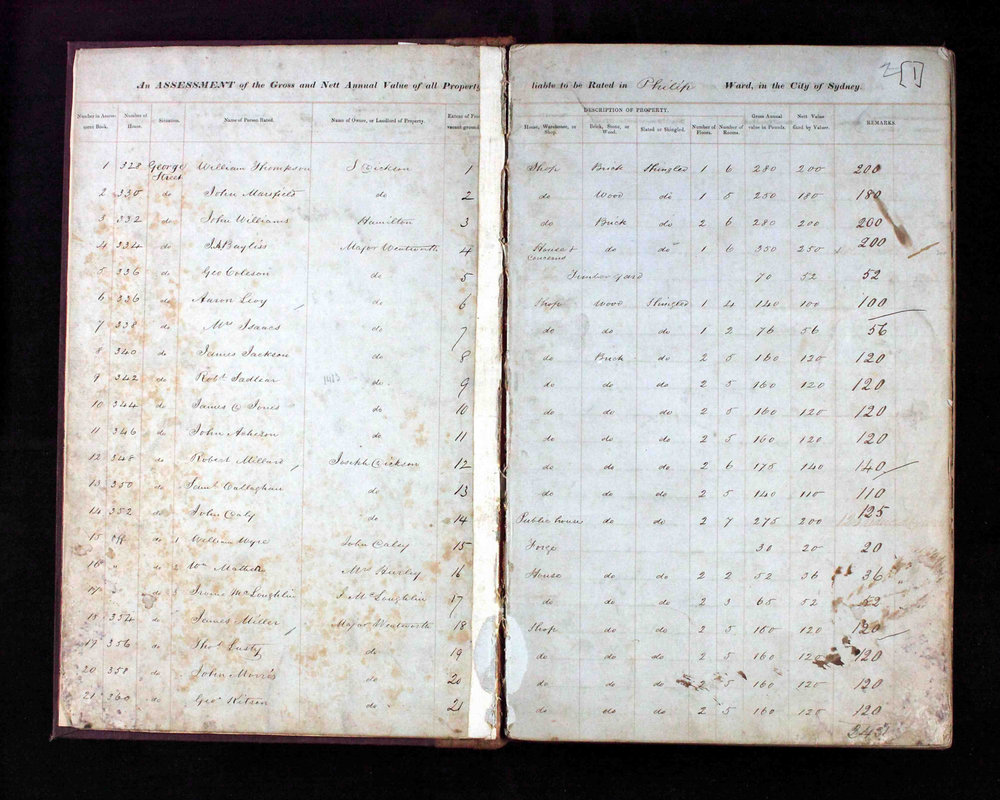 [1]
An ASSESSMENT of the Gross and Nett Annual Value of all Property liable to be Rated in Philip Ward, in the City of Sydney
DESCRIPTION OF PROPERTY.
Number in Assessment Book. Number of House. Situation. Name of Person Rated. Name of Owner, or Landlord of Property. House, Warehouse, or Shop. Brick, Stone, or Wood. Slated or Shingled. Number of Floors. Number of Rooms. Gross Annual value in Pounds. Nett Value fixed by Valuer. REMARKS
1 328 George Street William Thompson J Dickson 1 Shop Brick Shingled 1 6 280 200 200
2 330 do John Marsfield do 2 do Wood do 1 5 250 180 180
3 332 do John Williams Hamilton 3 do Brick do 2 6 280 200 200
4 334 do Bayliss Major Wentworth 4 House & concerns do do 1 6 350 250 200
5 336 do Geo Coleson do 5 Timber yard 70 52 52
6 336 do Aaron Levy do 6 Shop Wood Shingled 1 4 140 100 100
7 338 do Mrs Isaacs do 7 do do do 1 2 76 56 56
8 340 do James Jackson do 8 do Brick do 2 5 160 120 120
9 342 do Robt Sadlear do 9 do do do 2 5 160 120 120
10 344 do James C Jones do 10 do do do 2 5 160 120 120
11 346 do John Acheson do 11 do do do 2 5 160 120 120
12 348 do Robert Millard Joseph Dickson 12 do do do 2 6 175 140 140
13 350 do Saml Callaghan do 13 do do do 2 5 140 110 110
14 352 do John Caly do 14 Public house do do 2 7 275 200 125
15 off do 1 William Wyre John Caley 15 Forge 30 20 20
16 " do 2 Wm Mrs Hurley 16 House do do 2 2 52 36 36
17 " do 3 Irvine McLoughlin J McLoughlin 17 do do do 2 3 65 52 52
18 354 do James Miller Major Wentworth 18 Shop do do 2 5 160 120 120
19 356 do Thos Lusty do 19 do do do 2 5 160 120 120
20 358 do John Morris do 20 do do do 2 5 160 120 120
21 360 do Geo Kitson do 21 do do do 2 5 160 120 120